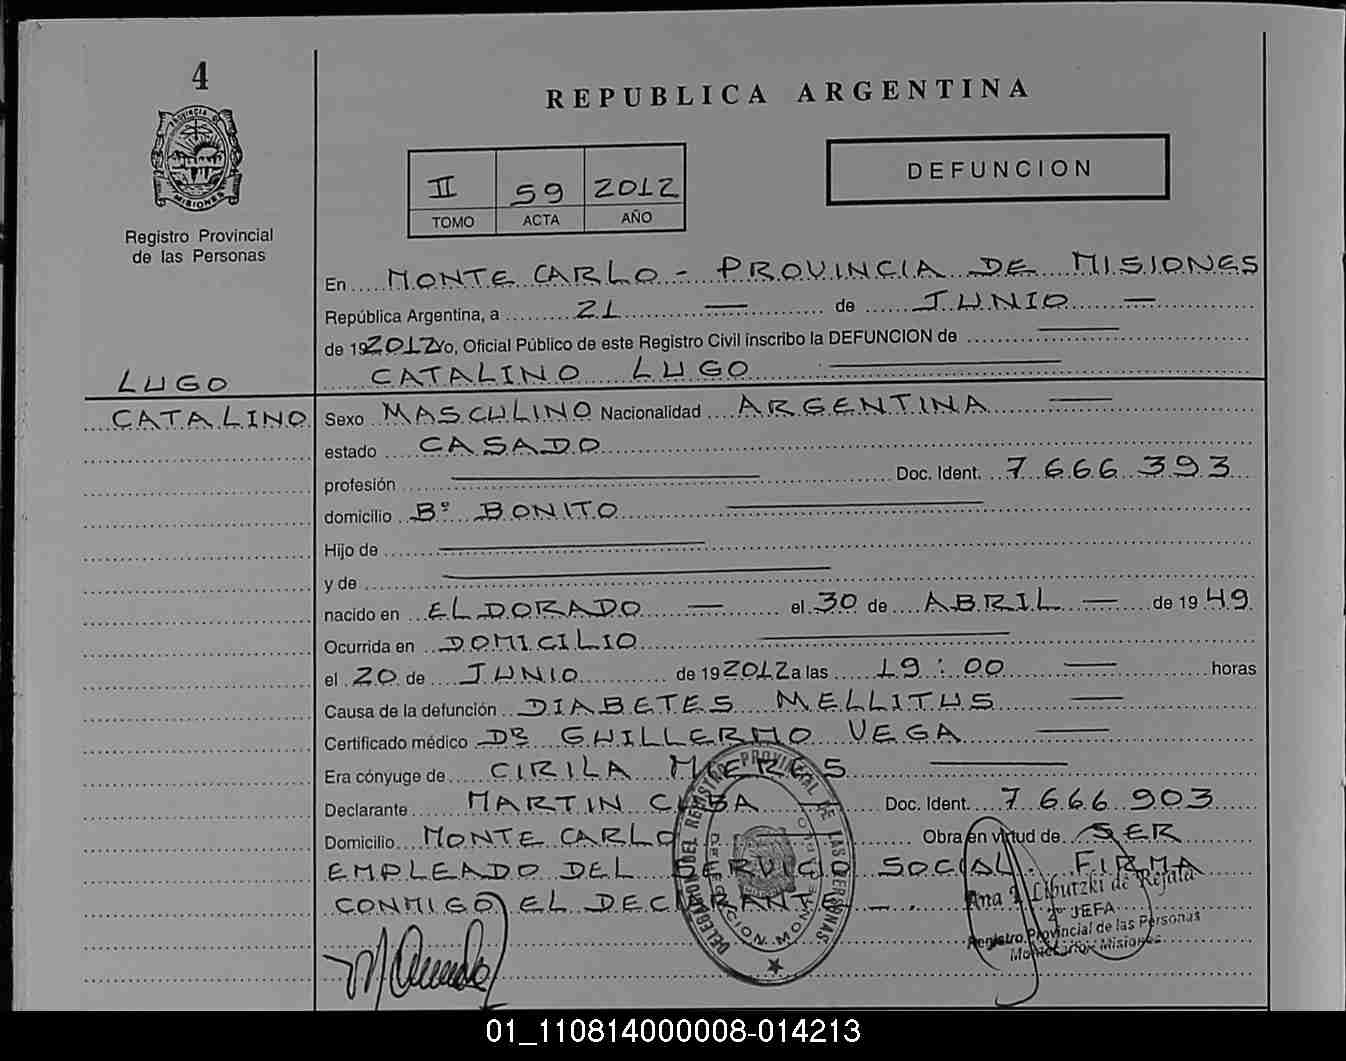 4
REPUBLICA ARGENTINA
PROVINCIA DE
MISIONES
Registro Provincial
de las Personas
II 59 2012
TOMO ACTA AÑO
DEFUNCION
En MONTE CARLO - PROVINCIA DE MISIONES
República Argentina, a 21 — de JUNIO —
de 192012 Yo, Oficial Público de este Registro Civil inscribo la DEFUNCION de
LUGO
CATALINO LUGO
CATALINO
Sexo MASCULINO Nacionalidad ARGENTINA —
estado CASADO
profesión — Doc. Ident. 7 666 393
domicilio Bº BONITO —
Hijo de —
y de —
nacido en ELDORADO — el 30 de ABRIL — de 19 49
Ocurrida en DOMICILIO —
el 20 de JUNIO de 192012 a las 19:00 — horas
Causa de la defunción DIABETES MELLITUS —
Certificado médico DR GUILLERMO VEGA —
Era cónyuge de CIRILA MIERES —
Declarante MARTIN CUBA — Doc. Ident. 7 666 903
Domicilio MONTE CARLO — Obra en virtud de SER
EMPLEADO DEL SERVICIO SOCIAL. FIRMA
CONMIGO EL DECLARANTE —.
DELEGACION DEL REGISTRO PROVINCIAL DE LAS PERSONAS
DELEGACION MONTE CARLO
Ana Liputzki de Rejala
JEFA
Registro Provincial de las Personas
Montecarlo - Misiones
01_110814000008-014213